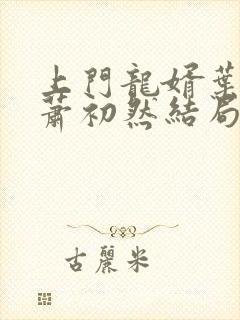 上門龍婿葉
蕭初然結局
古麗米